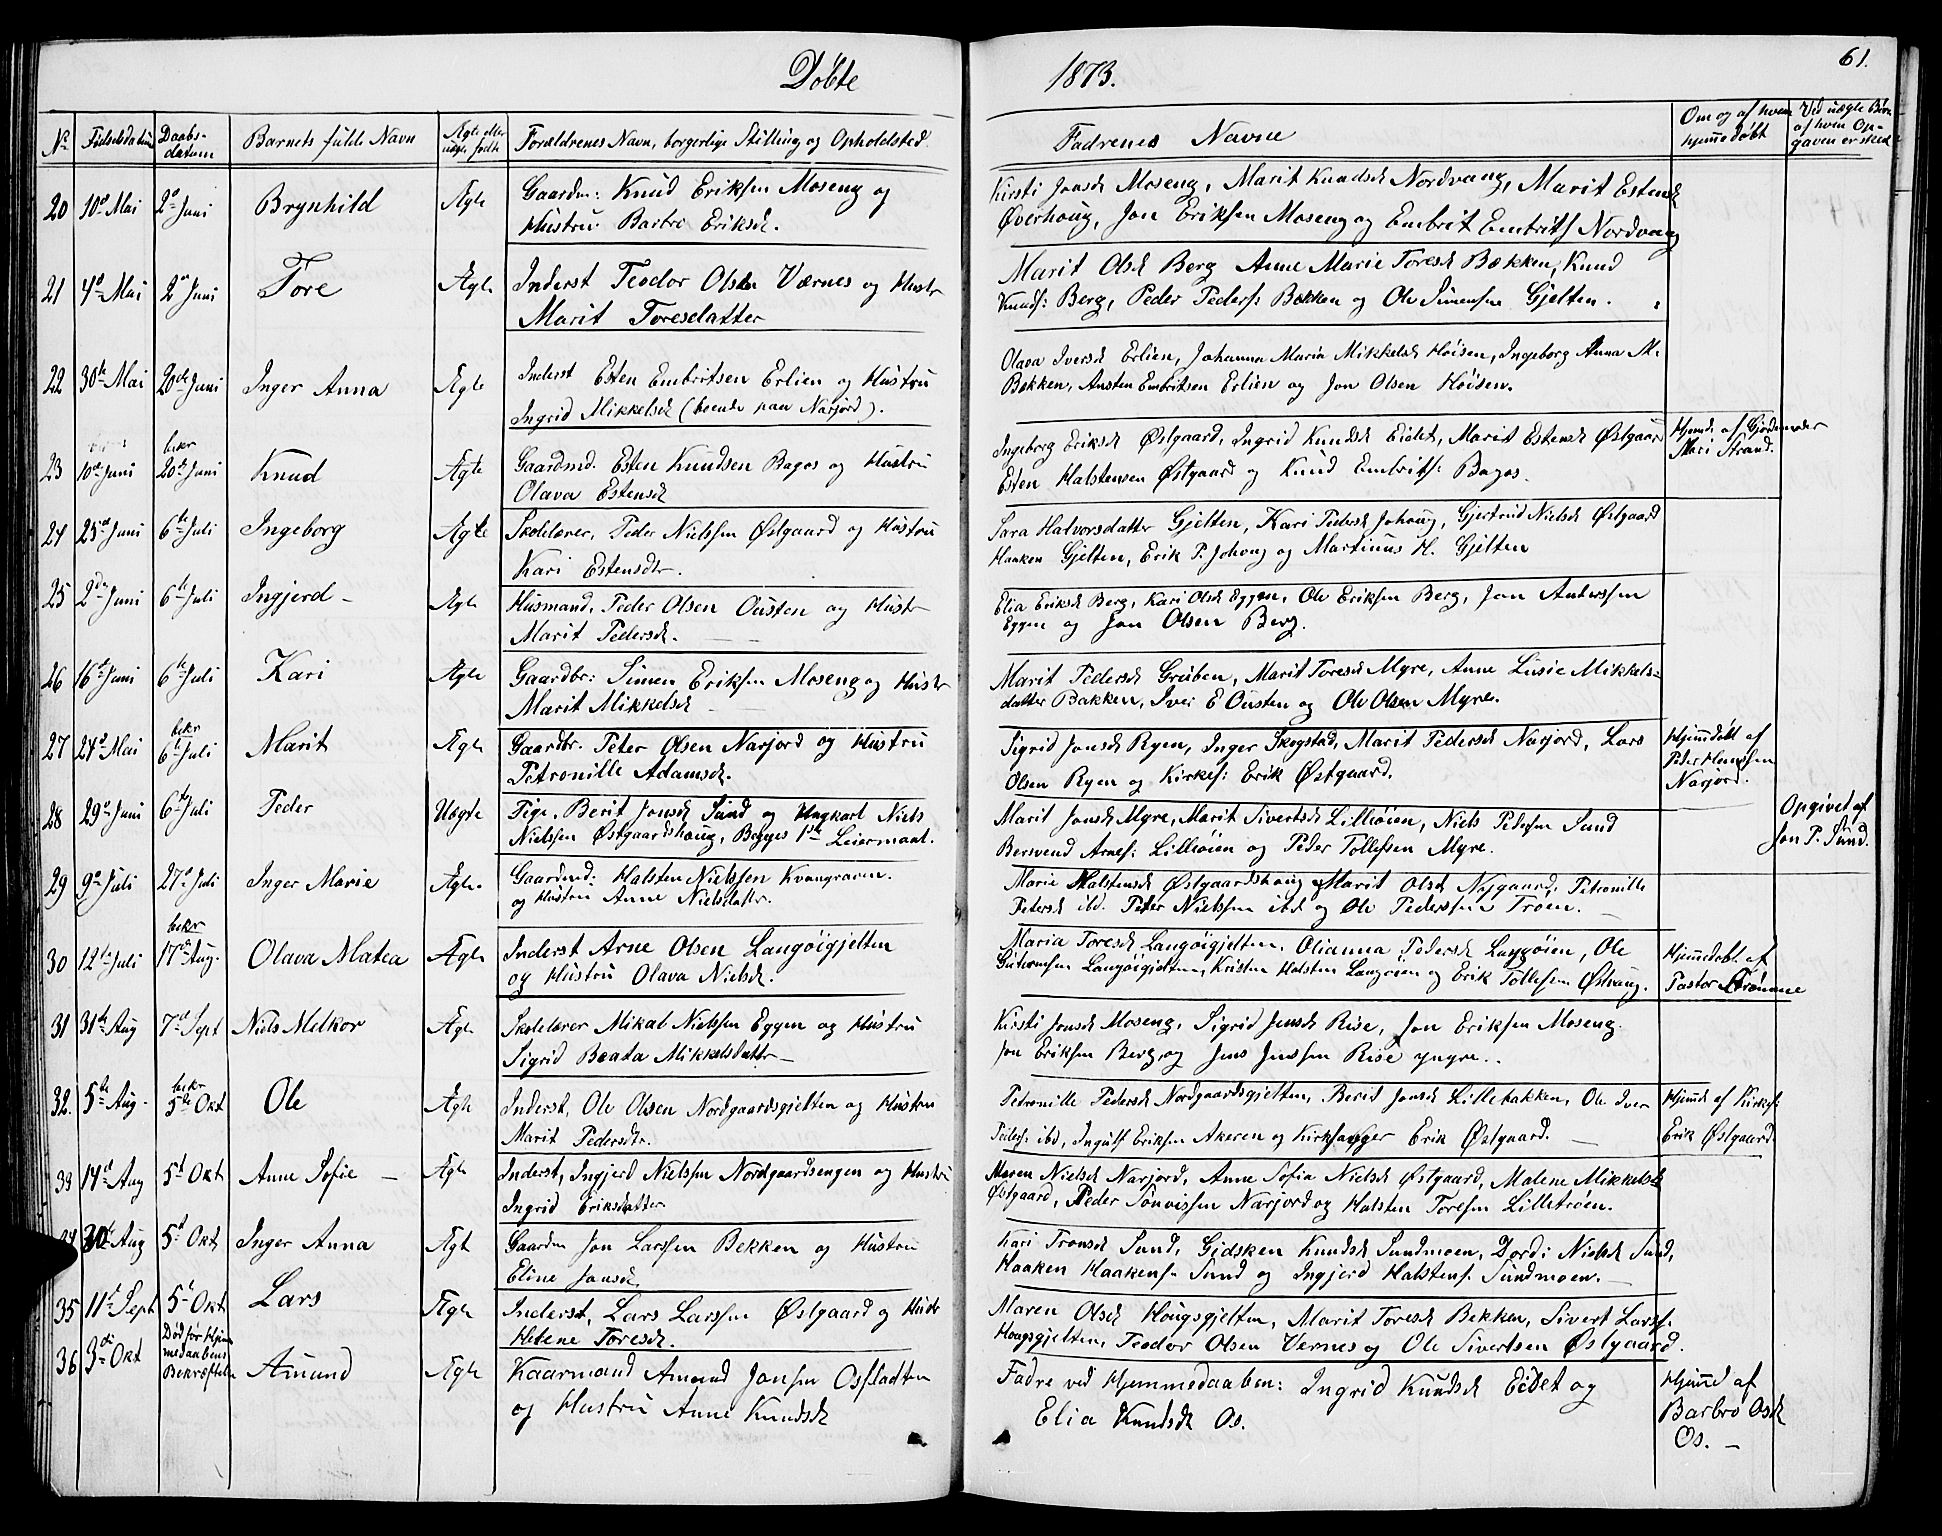 Döbte 1873. 61.
No Födselsdatum Daabs-datum Barnets fulde Navn Ægte eller uægte födte Forældrenes Navn, borgerlige Stilling og Opholdsted. Fadrenes Navne Om og af hvem hjemedöbt Ved uægte Börn af hvem Opgaven er skeet
20 10de Mai 2den Juni Brynhild Ægte Gaardm: Knud Eriksen Moseng og
Hustru Barbro Eriksd.
Kirsti Jonsd Moseng, Marit Knudsd Nordvang, Marit Estensd
Øverhoug, Jon Eriksen Moseng og Embrit Embritss Nordvang
21 4de Mai 2den Juni Tore Ægte Inderst Teodor Olsen Værnes og Hustr
Marit Toresdatter
Marit Olsd Berg Anne Marie Toresd Bækken, Knud
Knuds: Berg, Peder Peders: Bækken og Ole Simensen Gjelten.
22 30te Mai 20de Juni Inger Anna Ægte Inderst Esten Embritsen Erlien og Hustru
Ingrid Mikkelsd (boende paa Narjord).
Olava Iversd Erlien, Johanna Maria Mikkelsd Höisen, Ingeborg Anna M.
Bækken, Ansten Embritsen Erlien og Jon Olsen Höisen.
23 10de Juni bekr 20de Juni Knud Ægte Gaardmd. Esten Knudsen Bagos og Hustru
Olava Estensd
Ingeborg Eriksd Østgaard, Ingrid Knudsd Eidet, Marit Estensd Østgaard
Esten Halstensen Østgaard og Knud Embrits: Bagos.
Hjemd. af Gjordemoder
Mari Strand.
24 25de Juni 6te Juli Ingeborg Ægte Skolelærer, Peder Nielssen Østgaard og Hustru
Kari Estensdtr.
Sara Halvorsdatter Gjelten, Kari Pedersd Johoug, Gjertrud Nielsd Østgaard
Haaken Gjelten, Erik P. Johoug og Martinus H. Gjelten
25 2den Juni 6te Juli Ingjerd - Ægte Husmand, Peder Olsen Ousten og Hustr
Marit Pedersd.
Elia Eriksd Berg, Kari Olsd Eggen, Ole Eriksen Berg, Jon Anderssen
Eggen og Jon Olsen Berg.
26 16de Juni 6te Juli Kari Ægte Gaardbr: Simen Eriksen Moseng og Hustr
Marit Mikkelsd
Marit Pedersd Gruben, Marit Toresd Myre, Anne Lusie Mikkels-
datter Bakken, Iver E Ousten og Ole Olsen Myre.
27 24de Mai bekr 6te Juli Marit Ægte Gaardbr. Peter Olsen Narjord og Hustru
Petronille Adamsd.
Sigrid Jonsd Ryen, Inger Skogstad, Marit Pedersd Narjord, Lars
Olsen Ryen og Kirkes: Erik Østgaard.
Hjemedöbt af
Peder
28 29de Juni 6te Juli Peder Uægte Pige, Berit Jonsd Sund og Ungkarl Niels
Nielssen Østgaardshoug, Begges 1ste Leiermaal.
Marit Jonsd Myre, Marit Sivertsd Lilleöien, Niels Pedersen Sund
Berswend Arnes: Lilleöien og Peder Tollefsen Myre.
Opgivet af
Jon P. Sund.
29 9de Juli 27de Juli Inger Marie Ægte. Gaardmd: Halsten Nielssen Kvangraven.
og Hustru Anne Nielsdattr.
Marie Halstensd Østgaardshoug, Marit Olsd Nygaard, Petronille
Petersd ibd. Peter Nielssen ibd og Ole Pederssen Tröen.
30 12te Juli bekr 17de Aug. Olava Matea Ægte Inderst Arne Olsen Langöigjelten
og Hustru Olava Nielsd.
Maria Toresd Langöigjelten, Olianna Pedersd Langöien, Ole
Gutormsen Langöigjelten, Kristen Halsten Langöien og Erik Tollefsen Østhaug.
Hjemedöbt af
Pastor
31 31te Aug 7de Sept Niels Melkor Ægte Skolelærer Mikal Nielssen Eggen og Hustru
Sigrid Beata Mikkelsdattr -
Kirsti Jonsd Moseng, Sigrid Jensd Rise, Jon Eriksen Moseng.
Jon Eriksen Berg, og Jens Jenssen Rise yngre.
32. 5te Aug. bekr 5te Okt Ole Ægte Inderst, Ole Olsen Nordgaardsgjelten og Hustru
Marit Pedersdtr.
Petronille Pedersd Nordgaardsgjelten, Berit Jonsd Lillebakken, Ole Iver
Peders: ibd, Ingulf Eriksen Akeren og Kirksanger Erik Østgaard. -
Hjemd af Kirkes:
Erik Østgaard.
33 14de Aug 5te Okt Anne Sofie - Ægte Inderst, Ingjerd Nielssen Nordgaardsengen og Hustru
Ingrid Eriksdatter
Maren Nielsd Narjord, Anne Sofia Nielsd Østgaard, Malene Mikkelsd
Østgaard, Peder Tönvissen Narjord og Halsten Toresen Lilletröen.
34 30te Aug 5te Okt Inger Anna Ægt Gaardm Jon Larssen Bekken og Hustru
Eline Jonsd.
Kari Tronsd Sund, Gidsken Knudsd Sundmoen, Dordi Nielsd Sund,
Haaken Haakens: Sund og Ingjerd Halstens: Sundmoen. -
35 11te Sept 5te Okt Lars Ægte Inderst, Lars Larssen Østgaard og Hustr
Helene Toresd.
Maren Olsd Hougsgjelten, Marit Toresd Bekken, Sivert Larss:
Hougsgjelten, Teodor Olsen Vernes og Ole Sivertsen Østgaard.
36 3die Okt Död för Hjemmedaabens Bekræftelse Amund Ægte Kaarmand Amund Jonsen Osfladten
og Hustru Anne Knudsd
Fadre ved Hjemmedaaben: Ingrid Knudsd Eidet og
Elia Knudsd Os.
Hjemed af
Barbro Osd
Os. -